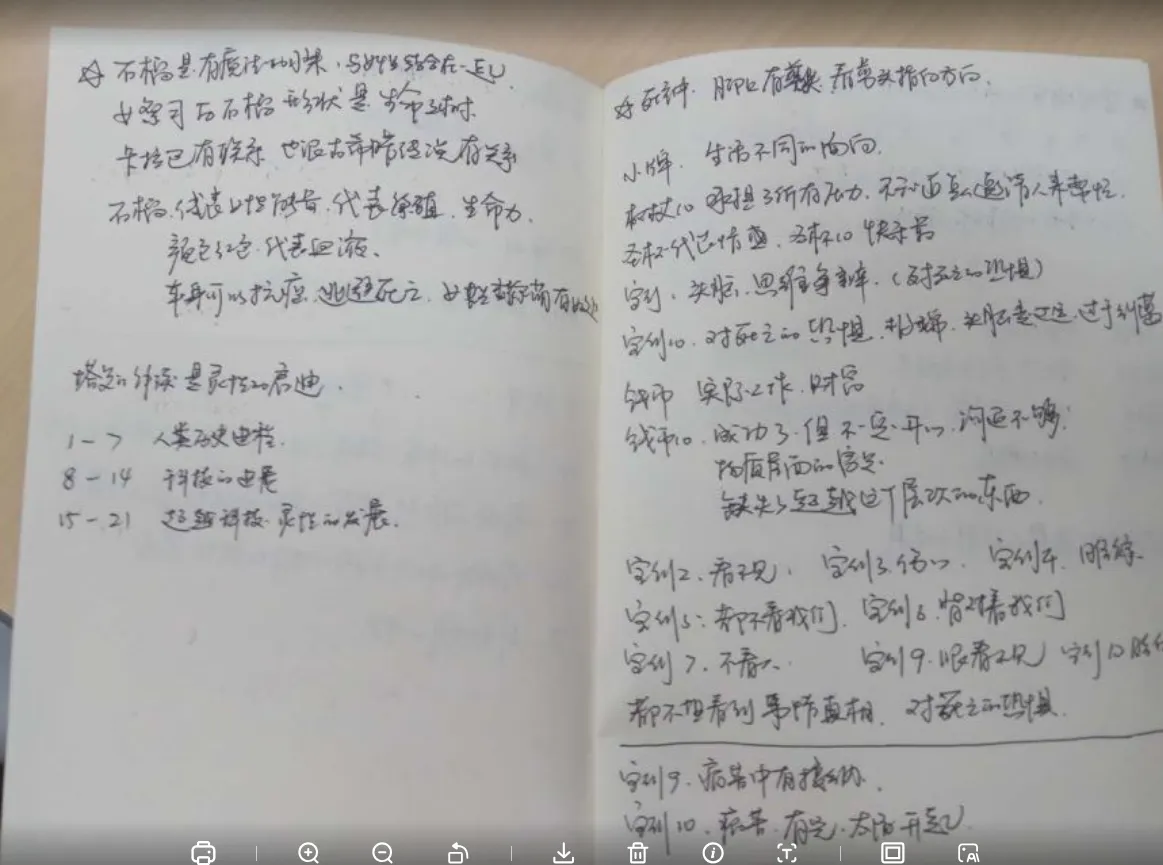 ☆ 石榴是有魔法的水果，与女性结合在一起
女祭司与石榴 形状是 生命之树
卡巴 有联系 也跟古希腊传说有关系
石榴 代表女性 代表繁殖，生命力，
颜色红色，代表血液。
可以抗癌，逃避死亡，女性
塔罗的 是灵性的启迪．
1－7 人类历史进程．
8－14 科技的进展
15－21 超越科技 灵性的发展．
☆ 死神，脚上有 看箭头指向方向．
小牌． 生活不同的面向．
权杖10 承担了所有压力，不知道怎么邀请人来帮忙．
圣杯代表情感，圣杯10 快乐
宝剑，头脑，思维（对死亡的恐惧）
宝剑10．对死亡的恐惧，过于纠葛
钱币 实际工作．财富
钱币10．成功了．但不一定开心，沟通不够．
物质层面的富足．
缺失了超越这个层次的东西．
宝剑2．看不见． 宝剑3．伤心． 宝剑4．
宝剑5：都不看我们． 宝剑6．背对着我们
宝剑7．不看 宝剑9．眼看不见 宝剑10
都不想看到事情真相． 对死亡的恐惧．
宝剑9．病苦中有
宝剑10． 有光．太阳升起